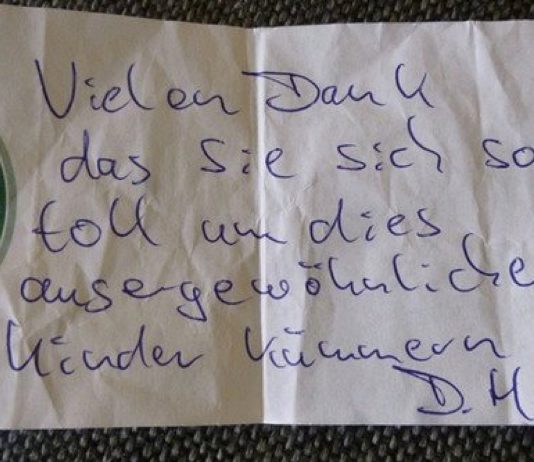 Vielen Dank
das Sie sich so
toll um dies
ausergewöhnliche
Kinder kümmern
D. H